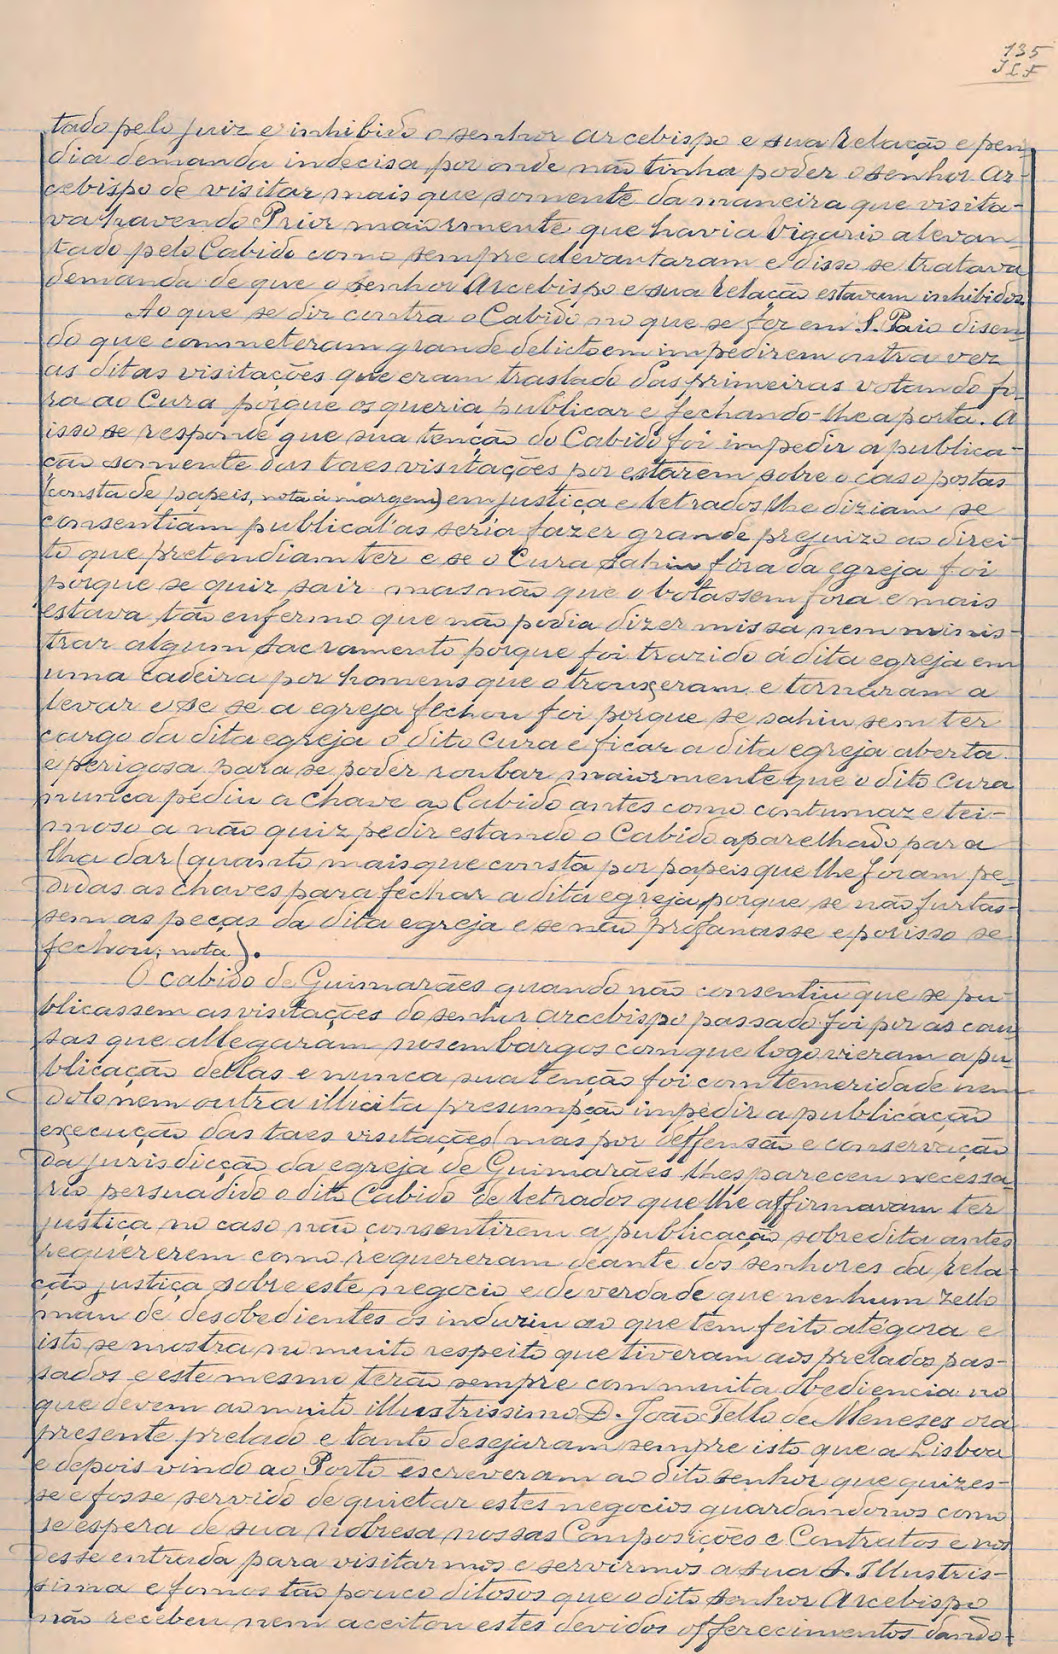 135
JLF
tado pelo juiz e inhibido o senhor arcebispo e sua Relação e pen-
dia demanda indecisa por onde não tinha poder o senhor Ar-
cebispo de visitar mais que somente da maneira que visita-
va havendo Prior maiormente que havia Vigario alevan-
tado pelo Cabido como sempre alevantaram e disso se tratava
demanda de que o senhor Arcebispo e sua Relação estavam inhibidos.
Ao que se diz contra o Cabido no que se fez em S. Paio dizen-
do que commeteram grande delicto em impedirem outra vez
as ditas visitações que eram traslado das primeiras votando fo-
ra ao Cura porque os queria publicar e fechando-lhe a porta. A
isso se responde que sua tenção do Cabido foi impedir a publica-
ção somente das taes visitações por estarem sobre o caso postas
(consta de papeis, nota á margem) em justiça e letrados lhe diziam se
consentiam publical'as seria fazer grande prejuizo ao direi-
to que pretendiam ter e se o Cura sahiu fóra da egreja foi
porque se quiz sair mas não que o botassem fora e mais
estava tão enfermo que não podia dizer missa nem minis-
trar algum Sacramento porque foi trazido á dita egreja em
uma cadeira por homens que o trouxeram e tornaram a
levar e se se a egreja fechou foi porque se sahiu sem ter
cargo da dita egreja o dito Cura e ficar a dita egreja aberta
e perigosa para se poder roubar maiormente que o dito Cura
nunca pediu a chave ao Cabido antes como contumaz e tei-
moso a não quiz pedir estando o Cabido aparelhado para
lha dar (quanto mais que consta por papeis que lhe foram pe-
didas as chaves para fechar a dita egreja porque se não furtas-
sem as peças da dita egreja e se não profanasse e por isso se
fechou; nota).
O cabido de Guimarães quando não consentiu que se pu-
blicassem as visitações do senhor arcebispo passado foi por as cau-
sas que allegaram nos embargos com que logo vieram a pu-
blicação dellas e nunca sua tenção foi com temeridade nem
dolo nem outra illicita presumpção impedir a publicação
execução das taes visitações mas por deffensão e conservação
da jurisdicção da egreja de Guimarães lhes pareceu necessa-
rio persuadido o dito Cabido de letrados que lhe affirmavam ter
justiça no caso não consentirem a publicação sobredita antes
requererem como requereram deante dos senhores da Rela-
ção justiça sobre este negocio e de verdade que nenhum zello
mau de desobedientes os induziu ao que tem feito atégora e
isto se mostra no muito respeito que tiveram aos prelados pas-
sados e este mesmo terão sempre com muita obediencia no
que devem ao muito illustrissimo D. João Tello de Meneses ora
presente prelado e tanto desejaram sempre isto que a Lisboa
e depois vindo ao Porto escreveram ao dito senhor que quizes-
se e fosse servido de quietar estes negocios guardando-nos como
se espera de sua nobresa nossas Composições e Contratos e nos
desse entrada para visitarmos e servirmos a sua S. Illustris-
sima e fomos tão pouco ditosos que o dito senhor Arcebispo
não recebeu nem aceitou estes devidos offerecimentos dando-